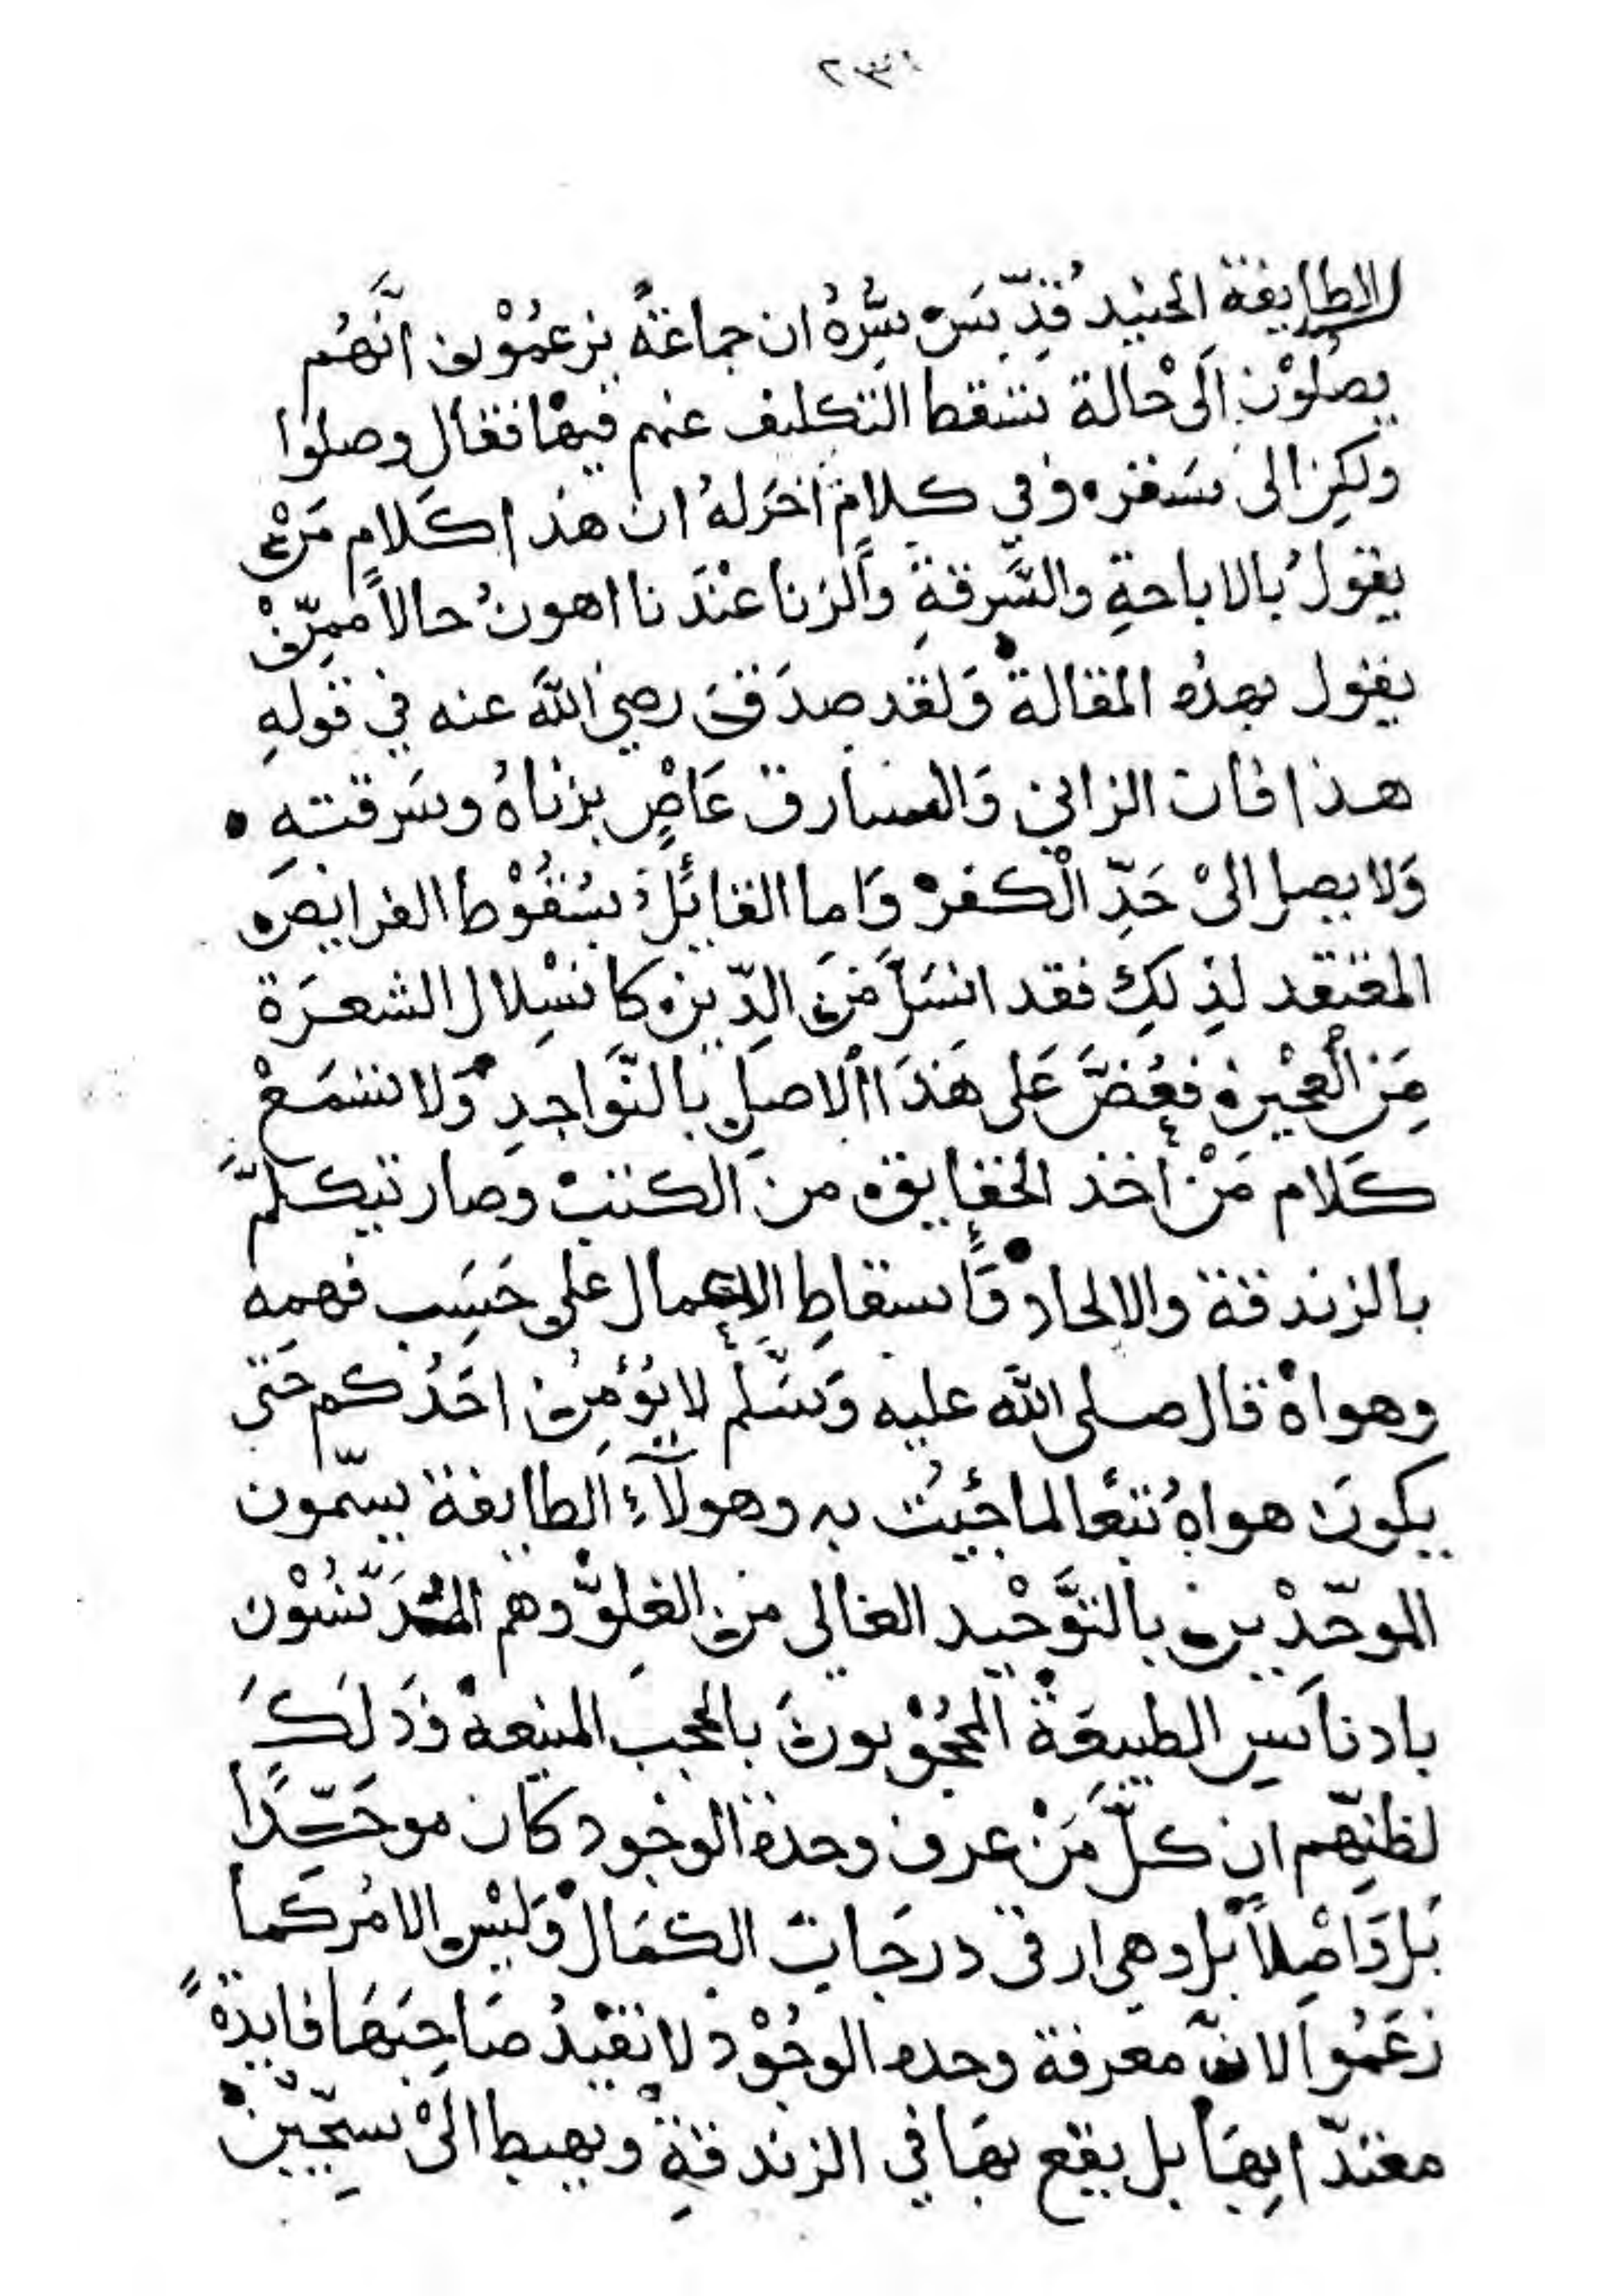 ٢٣١
الطايفة الجنيد قُدِّسَ سِرُّهُ ان جماعَةً يزعمُوْن انَّهُم
يصلُوْن الَىْ حالة تسقط التكليف عنهم فيها فقال وصلوا
ولكِن الى سَقَرْ وفي كلام اخَر لهُ ان هذا كَلام مَنْ
يقولُ بالاباحةِ والسَّرقةِ وَالزنا عنْدَنا اهونُ حالاً ممِّنْ
يقول بهذه المقالة وَلقد صدَقَ رضي اللّٰه عنه في قولهِ
هذا فان الزاني وَالسارق عَاصٍ بزناهُ وسَرقتهِ
وَلا يصل الىْ حَدِّ الْكفرْ وَاما القائلُ بسُقُوْط الفرايض
المعتقد لذلِكِ فقد انسَلَّ مِنَ الدِّين كانسْلال الشعرَة
مِنَ الْعجْين فعُضَّ عَلى هَذَا الاصلِ بالنَّواجدِ وَلا تسْمَعْ
كَلام مَنْ اخذ الحقايق من الكتبْ وصار تيكلمَّ
بالزندقة والالحادْ وَاسقاطِ الاعمال على حَسَب فهمِه
وهواهْ قال صلى اللّٰه عليه وَسَلَّم لا يُؤْمِن احَدُكم حَتى
يكونَ هواهُ تبعًا لما جَئيتُ به وهولآءِ الطايفة يسمّون
الموحّدْين بالتَّوحْيد الغالي من الغلِوّ وهم المُدَنَّسُوْن
بادناسِ الطبيعَة المحجُوْبون بالحجب المنيعةْ وَذَلكَ
لظنِّهم ان كلَّ مَنْ عرف وحدة الوجود كان موحّدًا
بَل وَاصْلاً بل وهي ارقى درجَات الكمَالْ وَليْس الامُر كما
زعَمُوا لانّ معرفة وحده الوجُوْد لا تفيْدُ صَاحِبَهَا فايدةً
معتدّا بهَا بل يقع بهَا في الزندقةِ ويهبط الىْ سجّيْن